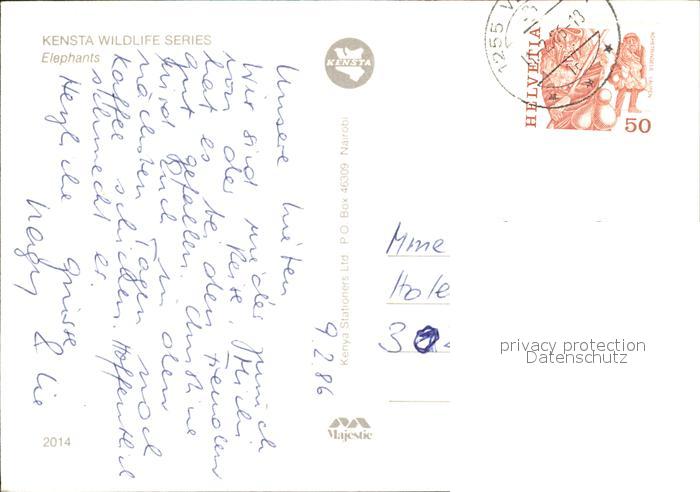 KENSTA WILDLIFE SERIES
Elephants
KENSTA
Kenya Stationers Ltd P.O. Box 46309 Nairobi
Majestic
2014
9.2.86
Unsere Lieben
Wir sind wieder zurück
von der Reise. Michi
hat es bei den Freunden
gut gefallen. Christine
wird Euch in den
nächsten Tagen noch
Kaffee schicken. Hoffentlich
schmeckt er.
Herzliche Grüsse
&
Mme
Hote
1255 V
HELVETIA
50
privacy protection
Datenschutz